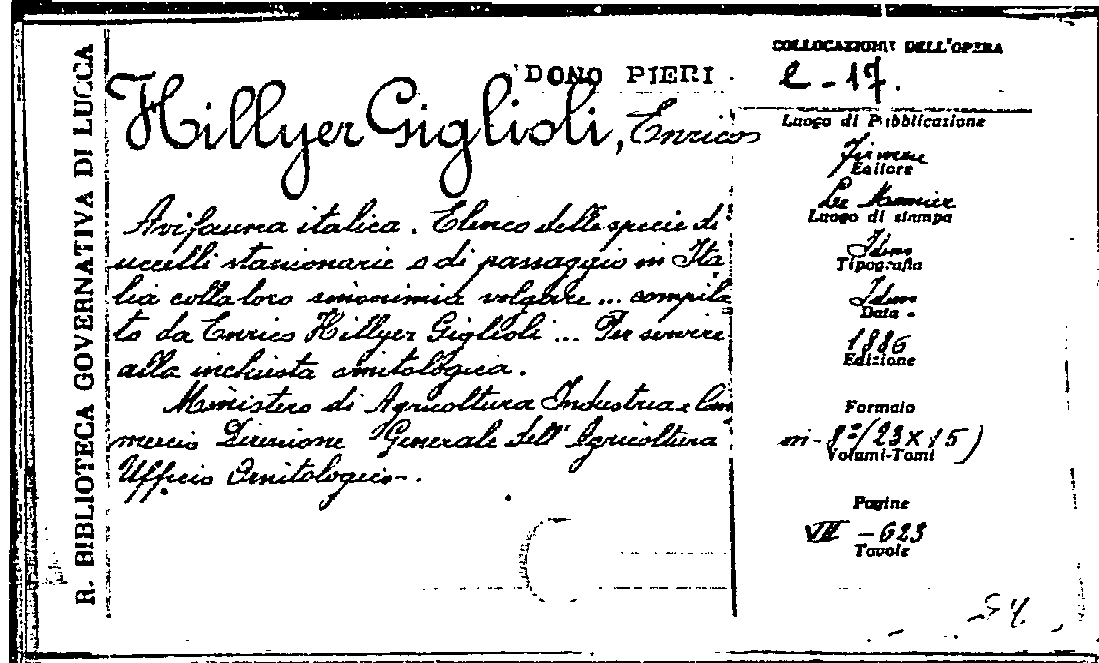 R. BIBLIOTECA GOVERNATIVA DI LUCCA
DONO PIERI
Hillyer Giglioli, Enrico
Avifauna italica. Elenco delle specie di
uccelli stazionarie o di passaggio in Ita
lia colla loro sinonimia volgare ... compila
to da Enrico Hillyer Giglioli ... Per servire
alla inchiesta ornitologica.
Ministero di Agricoltura Industria e Com
mercio Direzione Generale dell' Agricoltura
Ufficio Ornitologico.
COLLOCAZIONE DELL'OPERA
2-17.
Luogo di Pubblicazione
Firenze
Editore
Le Monnier
Luogo di stampa
Idem
Tipografia
Idem
Data
1886
Edizione
Formato
in-8º (23 x 15)
Volumi-Tomi
Pagine
VII - 623
Tavole